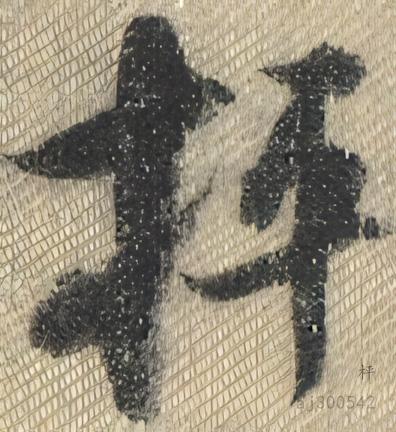 枰
枰
aj300542